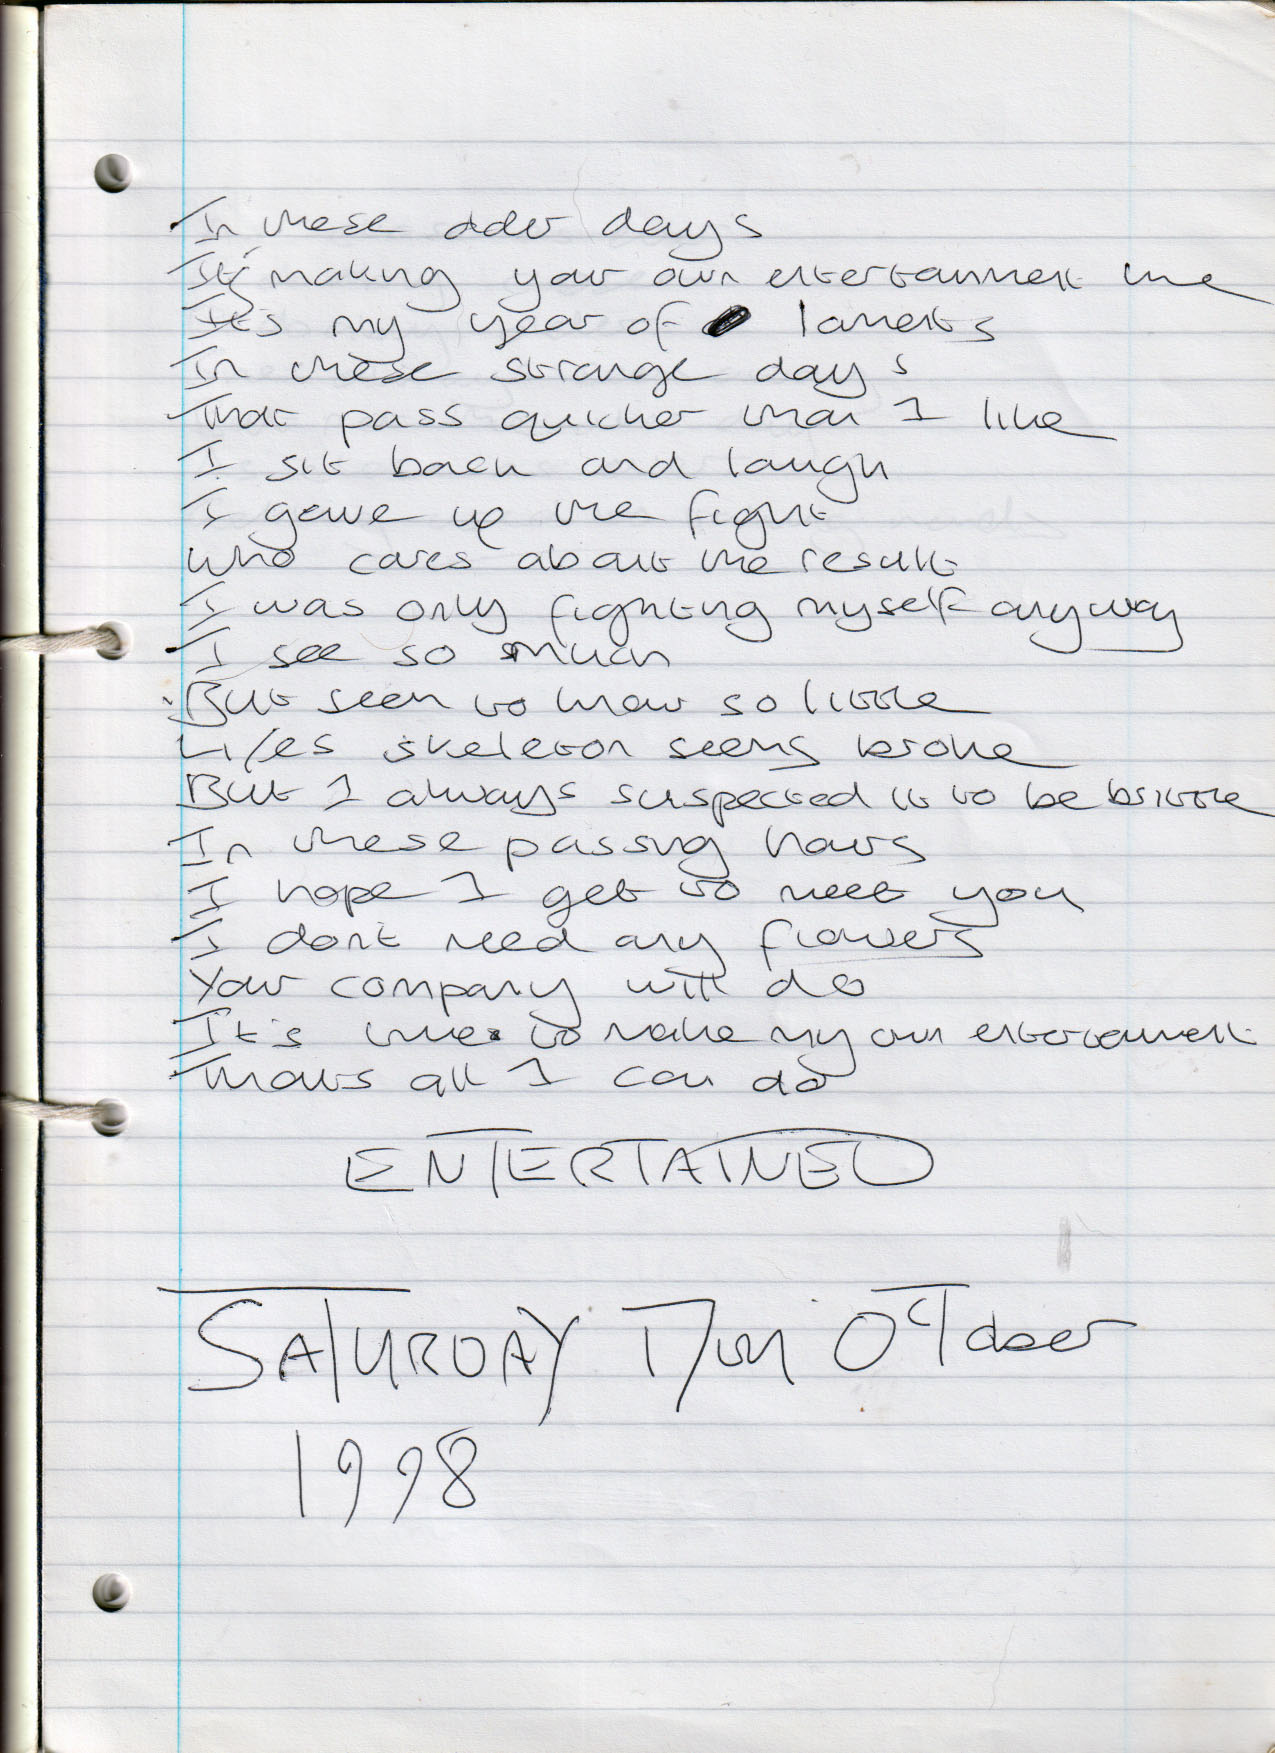 In these older days
It's making your own entertainment time
It's my year of laments
In these strange days
That pass quicker than I like
I sit back and laugh
I gave up the fight
Who cares about the result
I was only fighting myself anyway
I see so much
But seem to know so little
Lifes skeleton seems broke
But I always suspected it to be brittle
In these passing hours
I hope I get to meet you
I dont need any flowers
Your company will do
It's time to make my own entertainment
Thats all I can do
ENTERTAINED
SATURDAY 17th OCTober
1998